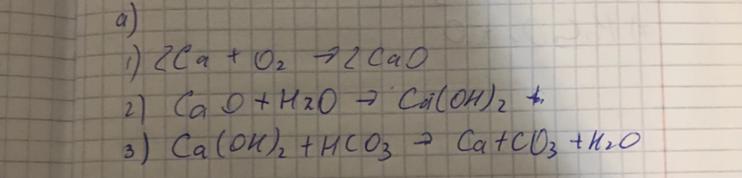 a)
1) 2Ca + O₂ → 2CaO
2) CaO + H₂O → Ca(OH)₂ +
3) Ca(OH)₂ + HCO₃ → Ca + CO₃ + H₂O